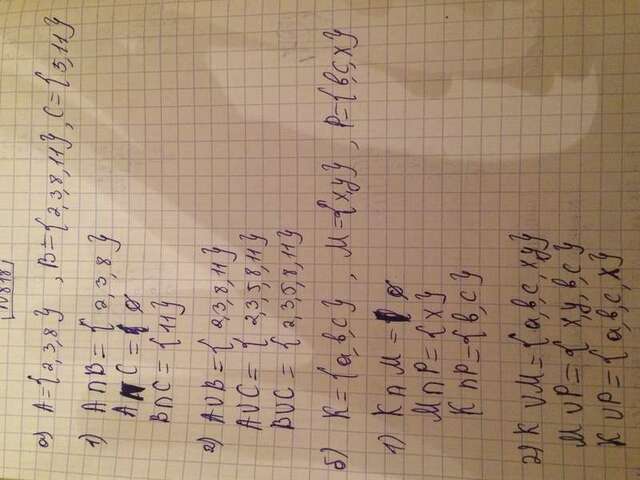 №818
а) A={2,3,8}, B={2,3,8,11}, C={5,11}
1) A∩B={2,3,8}
A∩C=∅
B∩C={11}
2) A∪B={2,3,8,11}
A∪C={2,3,5,8,11}
B∪C={2,3,5,8,11}
б) K={a,b,c}, M={x,y}, P={b,c,x}
1) K∩M=∅
M∩P={x}
K∩P={b,c}
2) K∪M={a,b,c,x,y}
M∪P={x,y,b,c}
K∪P={a,b,c,x}